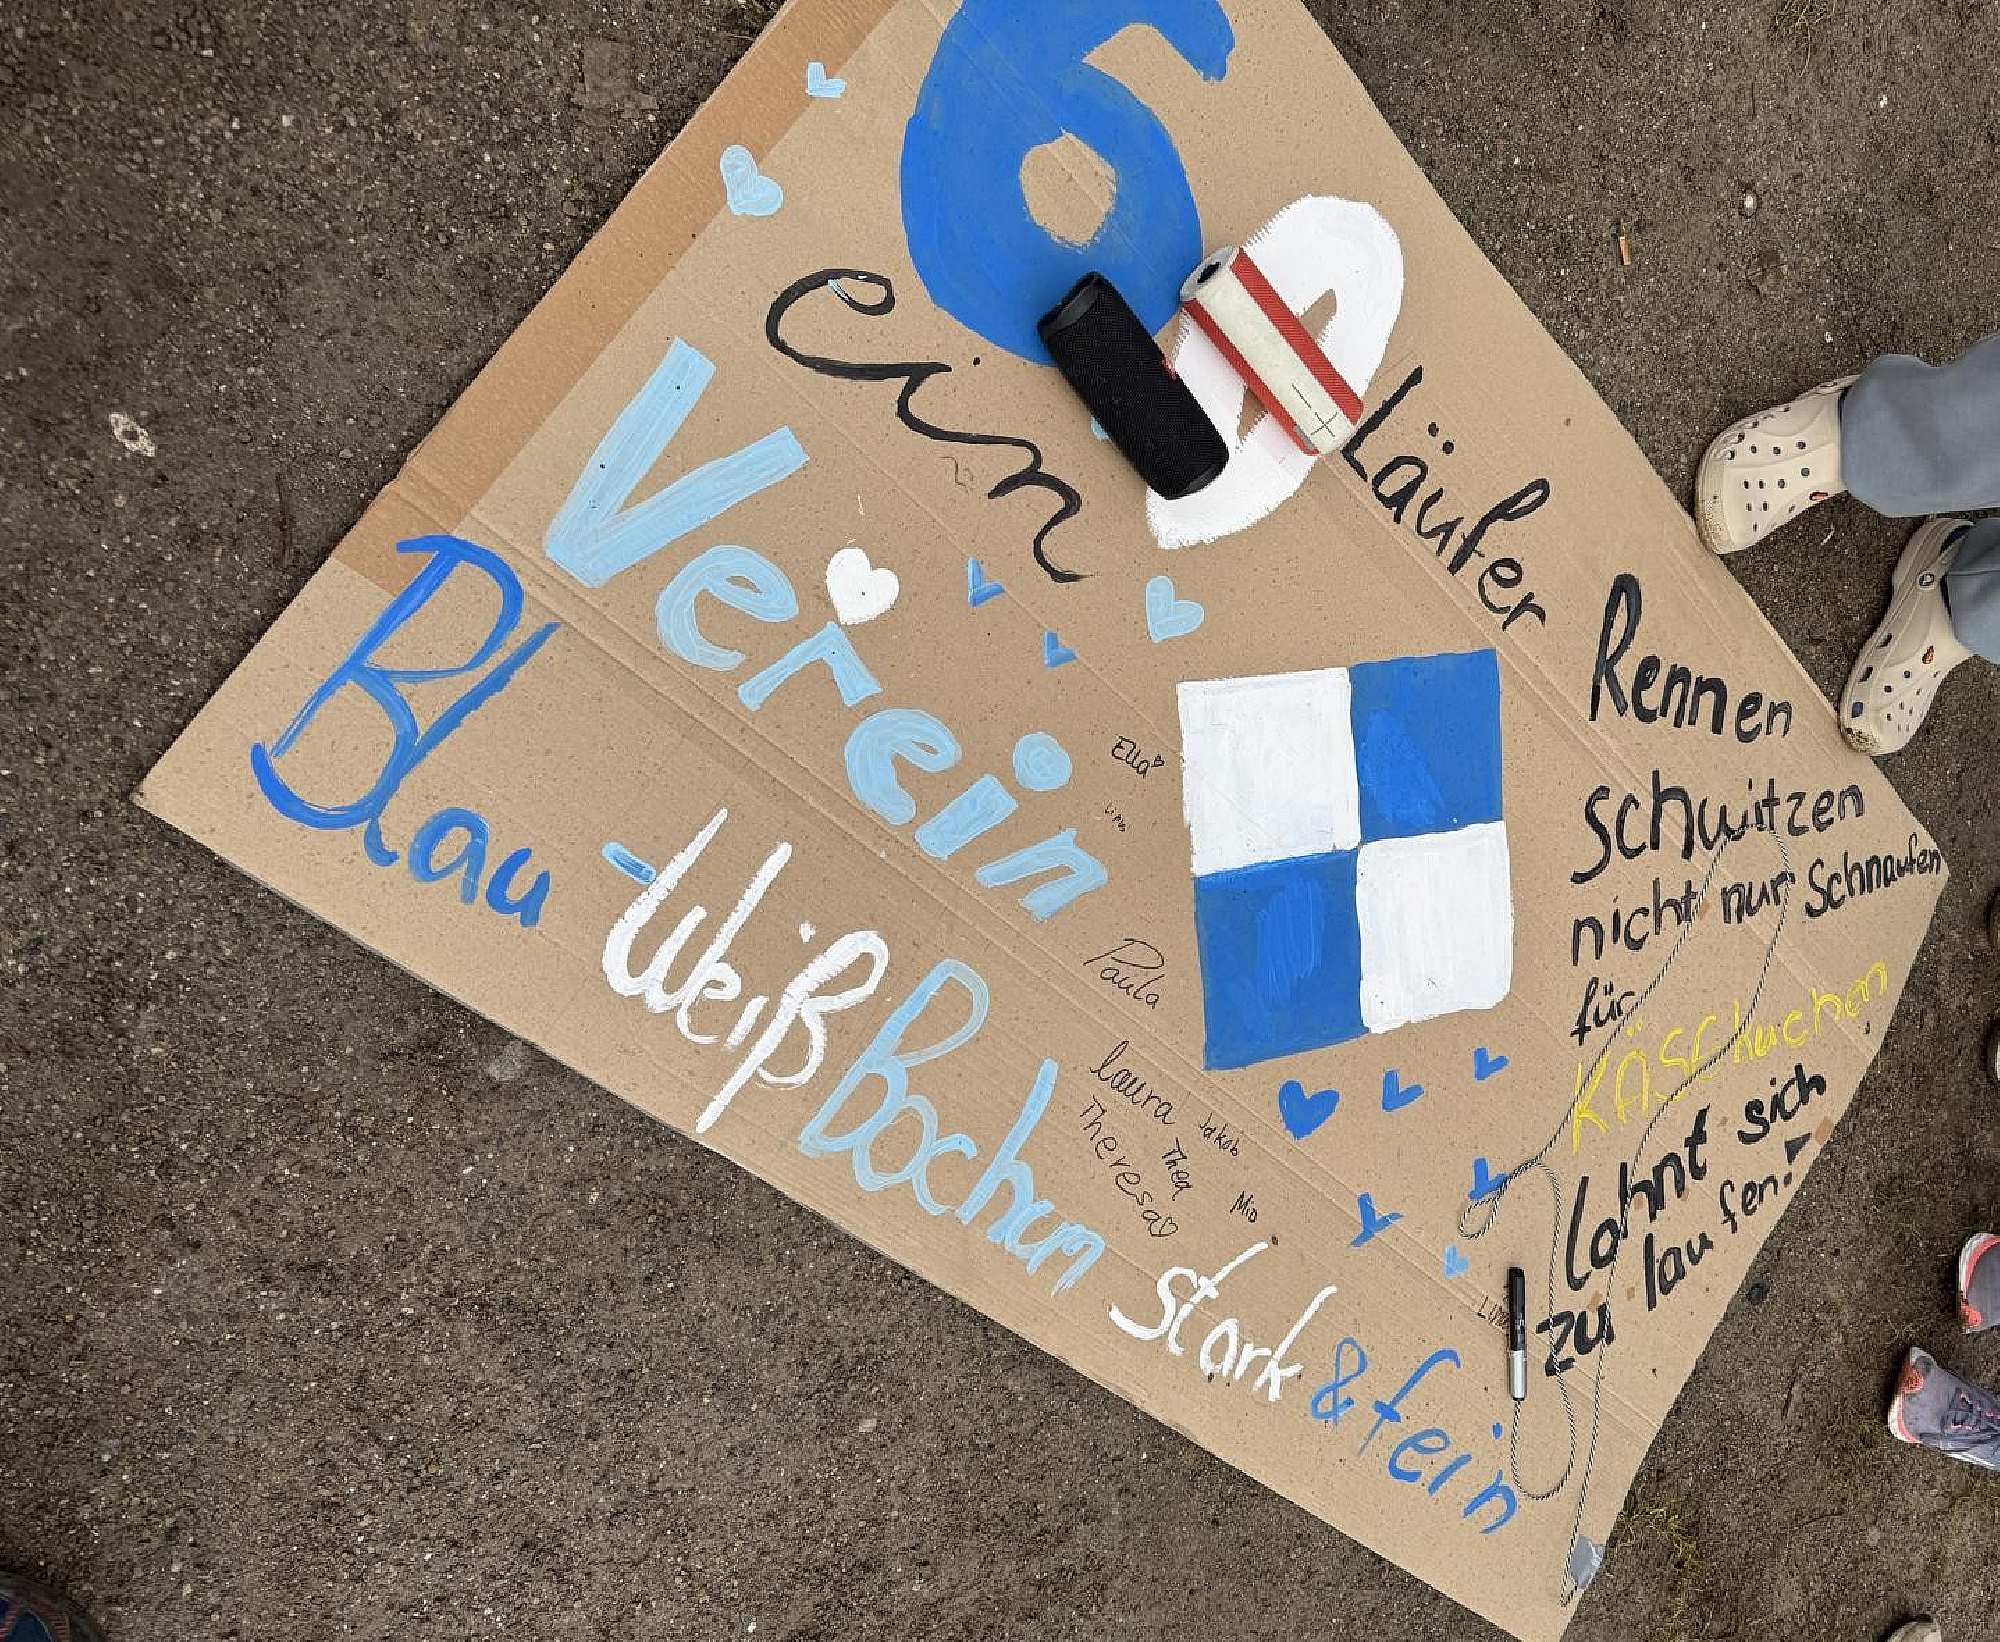 60 Läufer
ein
Verein
Blau-Weiß Bochum stark & fein
Rennen
schwitzen
nicht nur Schnaufen
für
KÄSEkuchen
lohnt sich
zu laufen!
Ella
Lina
Paula
laura
Jakob
Thea
Theresa
Mio
- +